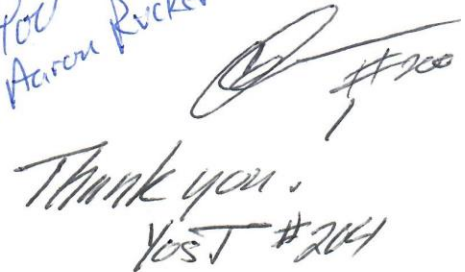 Aaron Rucker
#200
Thank you.
Yost #204